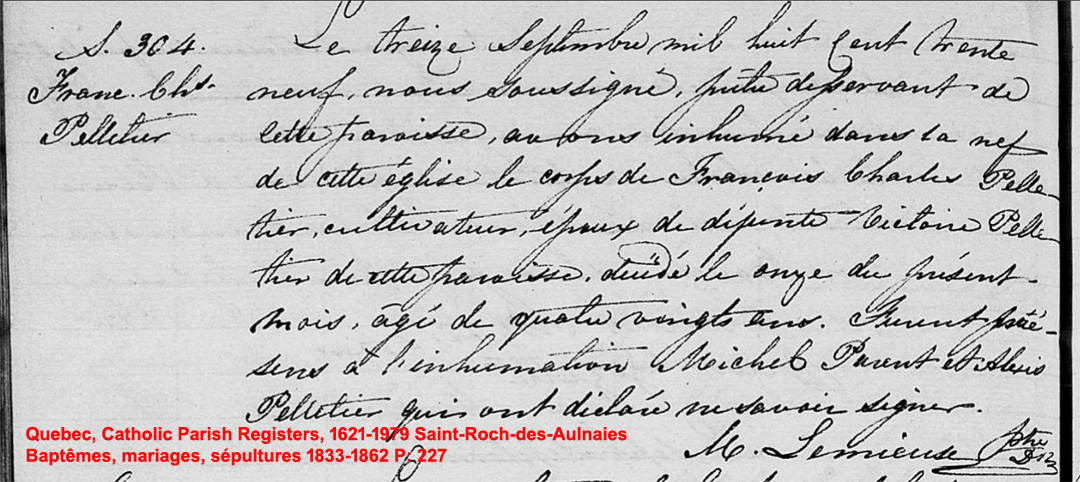 S. 304.
Franc. Chs.
Pelletier
Le treize Septembre mil huit Cent trente
neuf, nous soussigné, prêtre desservant de
cette paroisse, avons inhumé dans la nef
de cette église le corps de François Charles Pelle-
tier, cultivateur, époux de défunte Victoire Pelle-
tier de cette paroisse, décédé le onze du présent
mois, âgé de quatre vingts ans. Furent pré-
sens à l'inhumation Michel Parent et Alexis
Pelletier qui ont déclaré ne savoir signer.
M. Lemieux ptre
Quebec, Catholic Parish Registers, 1621-1979 Saint-Roch-des-Aulnaies
Baptêmes, mariages, sépultures 1833-1862 P. 227